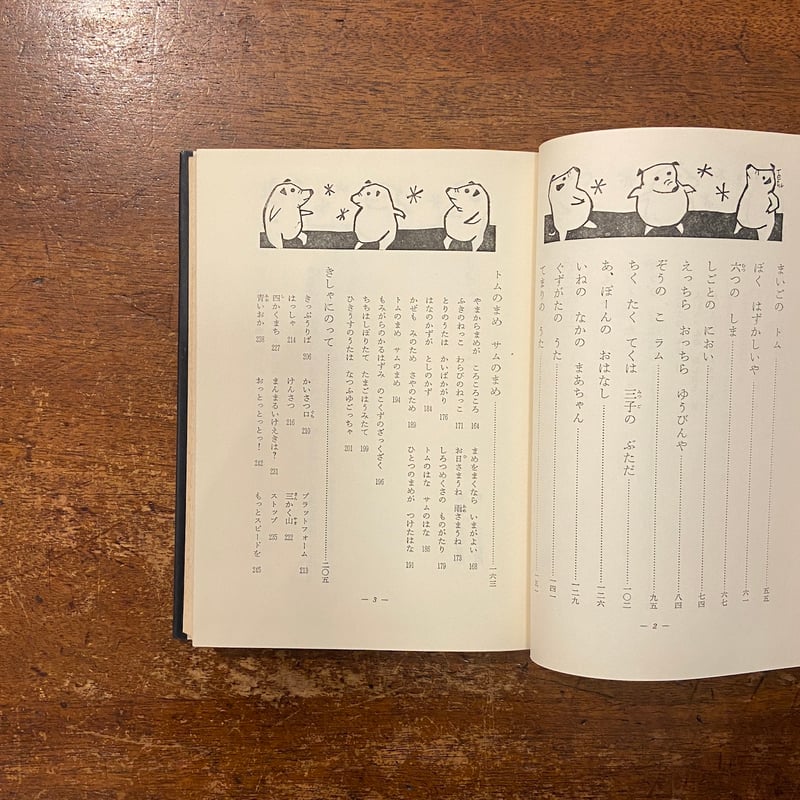 まいごの トム 五五
ぼく はずかしいや 六一
六つの しま 六七
しごとの におい 七四
えっちら おっちら ゆうびんや 八四
ぞうの こ ラム 九五
ちく たく てくは 三子の ぶただ 一〇二
あ、ぽーんの おはなし 一二六
いねの なかの まあちゃん 一二九
ぐずがたの うた 一四一
てまりの うた
— 2 —
トムのまめ サムのまめ 一六三
やまからまめが ころころころ 164 まめをまくなら いまがよい 168
ふきのねっこ わらびのねっこ 171 お日さまうね 雨さまうね 173
とりのうたは かいばかがり 176 しろつめくさの ものがたり 179
はなのかずが としのかず 184 トムのはな サムのはな 186
かぜも みのため さやのため 189 ひとつのまめが つけたはな 191
トムのまめ サムのまめ 194
もみがらのかるはずみ のこくずのざっくざく 196
ちちはしぼりたて たまごはうみたて 199
ひきうすのうたは なつふゆごっちゃ 201
きしゃにのって 二〇五
きっぷうりば 206 かいさつ口 210 プラットフォーム 213
はっしゃ 214 けんさつ 216 三かく山 222
四かくまち 227 まんまるいけえきは? 231 ストップ 235
青いおか 238 おっとっとっとっ! 242 もっとスピードを 245
— 3 —